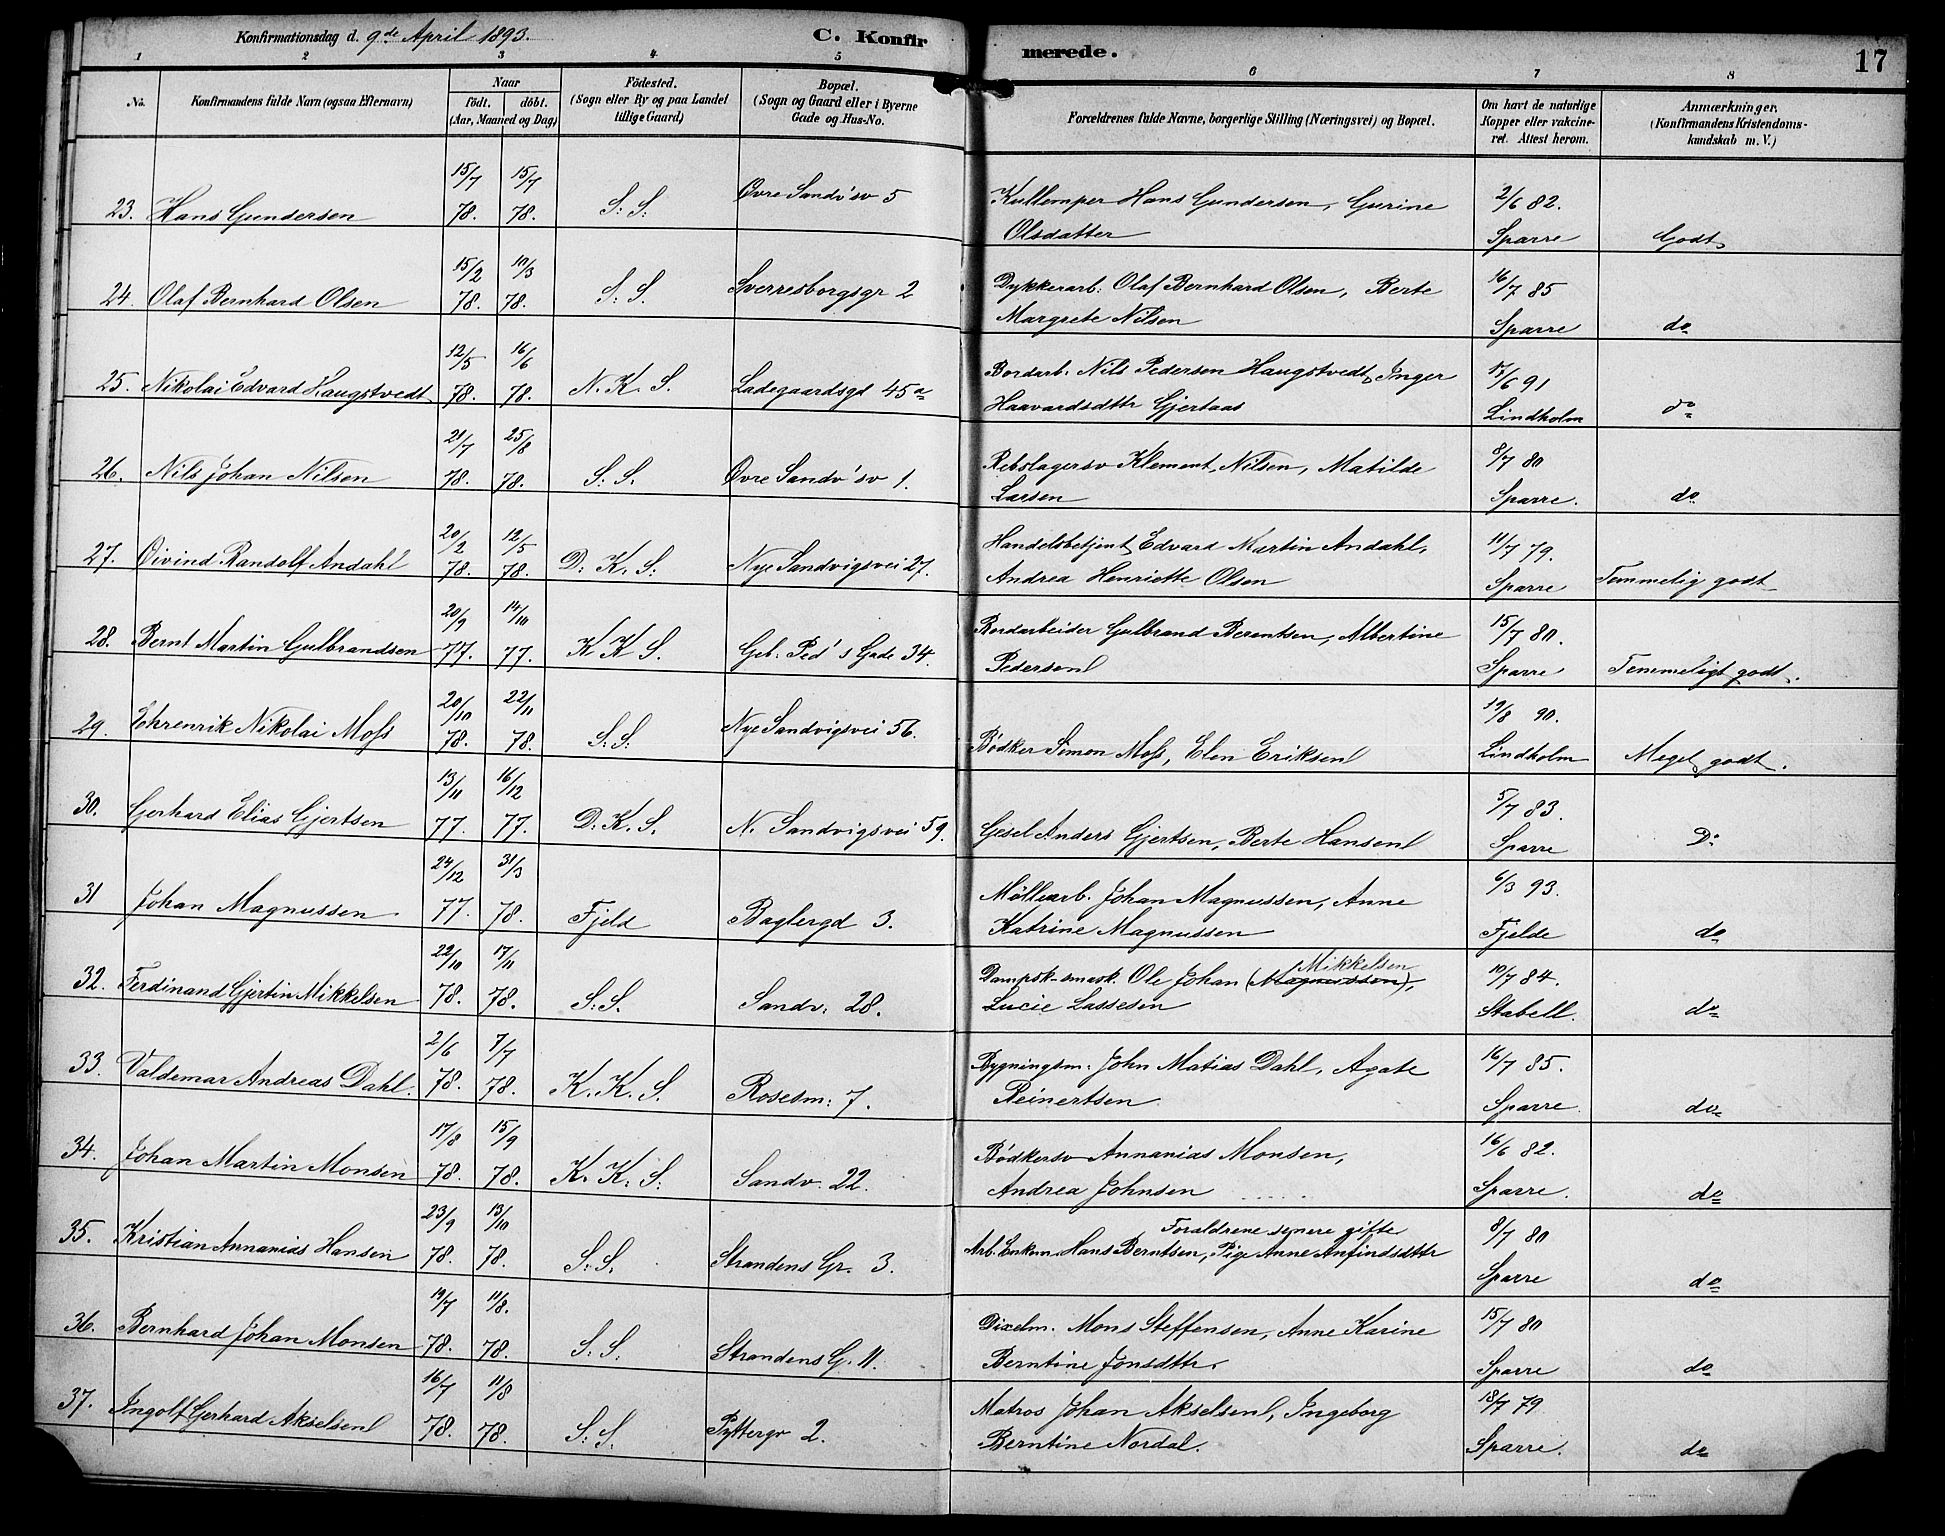 Konfirmationsdag d. 9de April 1893.
C. Konfirmerede.
17
1 2 3 4 5 6 7 8
No.
Konfirmandens fulde Navn (ogsaa Efternavn)
Naar
födt. döbt.
(Aar, Maaned og Dag)
Födested.
(Sogn eller By og paa Landet
tillige Gaard)
Bopæl.
(Sogn og Gaard eller i Byerne
Gade og Hus-No.
Forældrenes fulde Navne, borgerlige Stilling (Næringsvei) og Bopæl.
Om havt de naturlige
Kopper eller vakcine-
ret. Attest herom.
Anmærkninger.
(Konfirmandens Kristendoms-
kundskab m. V.)
15/7 15/7
23. Hans Gundersen 78. 78. S. S. Øvre Sandv'sv 5
Kullemper Hans Gundersen, Gurine 2/6 82.
Olsdatter Sparre Godt
15/2 10/3
24. Olaf Bernhard Olsen 78. 78. S. S. Sverresborgsgr 2
Dykkerarb. Olaf Bernhard Olsen, Berte 16/7 85
Margrete Nilsen Sparre do
12/5 16/6
25. Nikolai Edvard Haugstvedt 78. 78. N. K. S. Ladegaardsgd 45a
Bordarb. Nils Pedersen Haugstvedt, Inger 17/6 91
Haavardsdttr Gjertaas Lindholm do
21/7 25/8
26. Nils Johan Nilsen 78. 78. S. S. Øvre Sandv'sv 1.
Rebslagersv Klement Nilsen, Matilde 8/7 80
Larsen Sparre. do
20/2 12/5
27. Øivind Randolf Andahl 78. 78. D. K. S. Nye Sandvigsvei 27.
Handelsbetjent Edvard Martin Andahl, 11/7 79.
Andrea Henriette Olsen Sparre Temmelig godt
20/9 14/10
28. Bernt Martin Gulbrandsen 77. 77. K K S. Geb. Ped's Gade 34.
Bordarbeider Gulbrand Berentsen, Albertine 15/7 80.
Pedersen Sparre Temmeligt godt.
20/10 22/11
29. Ehrenrik Nikolai Moss 78. 78. S. S. Nye Sandvigsvei 56.
19/8 90.
Bødker Simon Moss, Elen Eriksen Lindholm Meget godt.
13/11 16/12
30. Gerhard Elias Gjertsen 77. 77. D. K. S. N. Sandvigsvei 59.
5/7 83.
Gesel Anders Gjertsen, Berte Hansen Sparre Do
24/12 31/3
31 Johan Magnussen 77. 78. Fjeld Baglergd 3.
Møllearb. Johan Magnussen, Anne 6/3 93.
Katrine Magnussen Fjelde do
22/10 17/11
32. Ferdinand Gjertin Mikkelsen 78. 78. S. S. Sandv. 28.
Mikkelsen
Dampsk-smask. Ole Johan (Magnussen), 10/7 84.
Lucie Lassesen Stabell. do
2/6 7/7
33. Valdemar Andreas Dahl. 78. 78. K. K. S. Rosesm: 7.
Bygningsm: John Matias Dahl, Agate 16/7 85.
Reinertsen Sparre. do
17/8 15/9
34. Johan Martin Monsen 78. 78. K. K. S. Sandv. 22.
Bødkersv Annanias Monsen, 16/6 82.
Andrea Johnsen Sparre. do
23/9 13/10
35. Kristian Annanias Hansen 78. 78. S. S. Strandens Gr. 3.
Foraldrene senere gifte
Arb. Enkem. Hans Berntsen, Pige Anne Anfindsdttr 8/7 80
Sparre do
19/7 11/8.
36. Bernhard Johan Monsen 78. 78. S. S. Strandens G. 11.
Dixelm. Mons Steffensen, Anne Karine 15/7 80
Berntine Jonsdttr. Sparre do
16/7 11/8
37. Ingolf Gerhard Akselsen 78. 78. S. S. Pyttergr 2.
Matros Johan Akselsen, Ingeborg 18/7 79
Berntine Nordal. Sparre. do